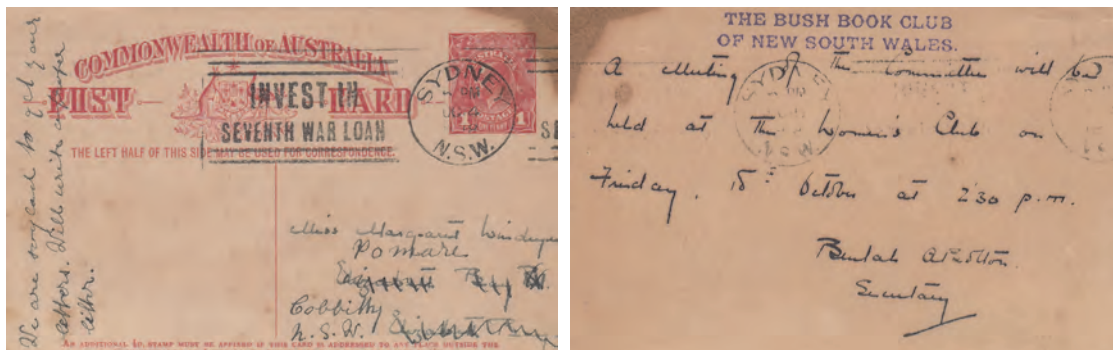 We are so glad to get your
letters. Will write a proper
letter.
COMMONWEALTH OF AUSTRALIA
POST CARD
INVEST IN
SEVENTH WAR LOAN
SYDNEY
N.S.W.
THE LEFT HALF OF THIS SIDE MAY BE USED FOR CORRESPONDENCE.
Miss Margaret
Pomare
Cobbitty
N.S.W.
AN ADDITIONAL ½D. STAMP MUST BE AFFIXED IF THIS CARD IS ADDRESSED TO ANY PLACE OUTSIDE THE
THE BUSH BOOK CLUB
OF NEW SOUTH WALES.
A Meeting of the Committee will be
held at the Women's Club on
Friday, 18th October at 2.30 p.m.
Beulah
Secretary